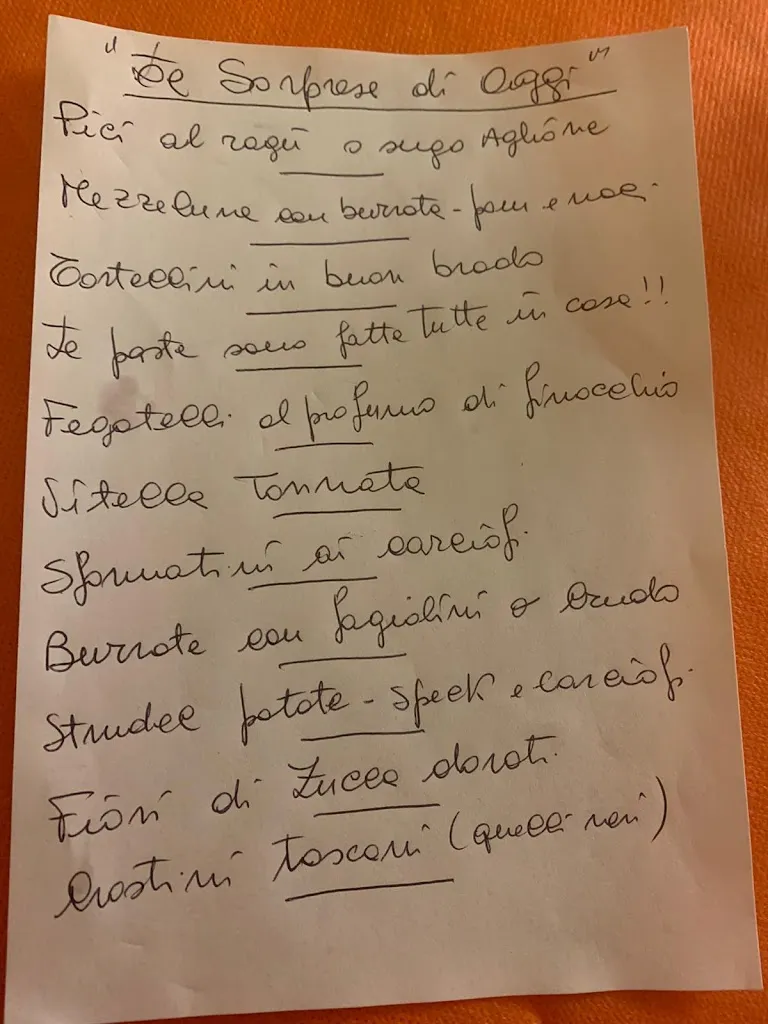 "Le Sorprese di Oggi"
Pici al ragù o sugo Aglione
Mezzelune con burrata - pom e noci
Tortellini in buon brodo
Le paste sono fatte tutte in casa!!
Fegatelli al profumo di finocchio
Vitella Tonnata
Sformatini ai carciofi
Burrata con fagiolini o Crudo
Strudel patate - speek e carciofi
Fiori di Zucca dorati
Crostini toscani (quelli neri)